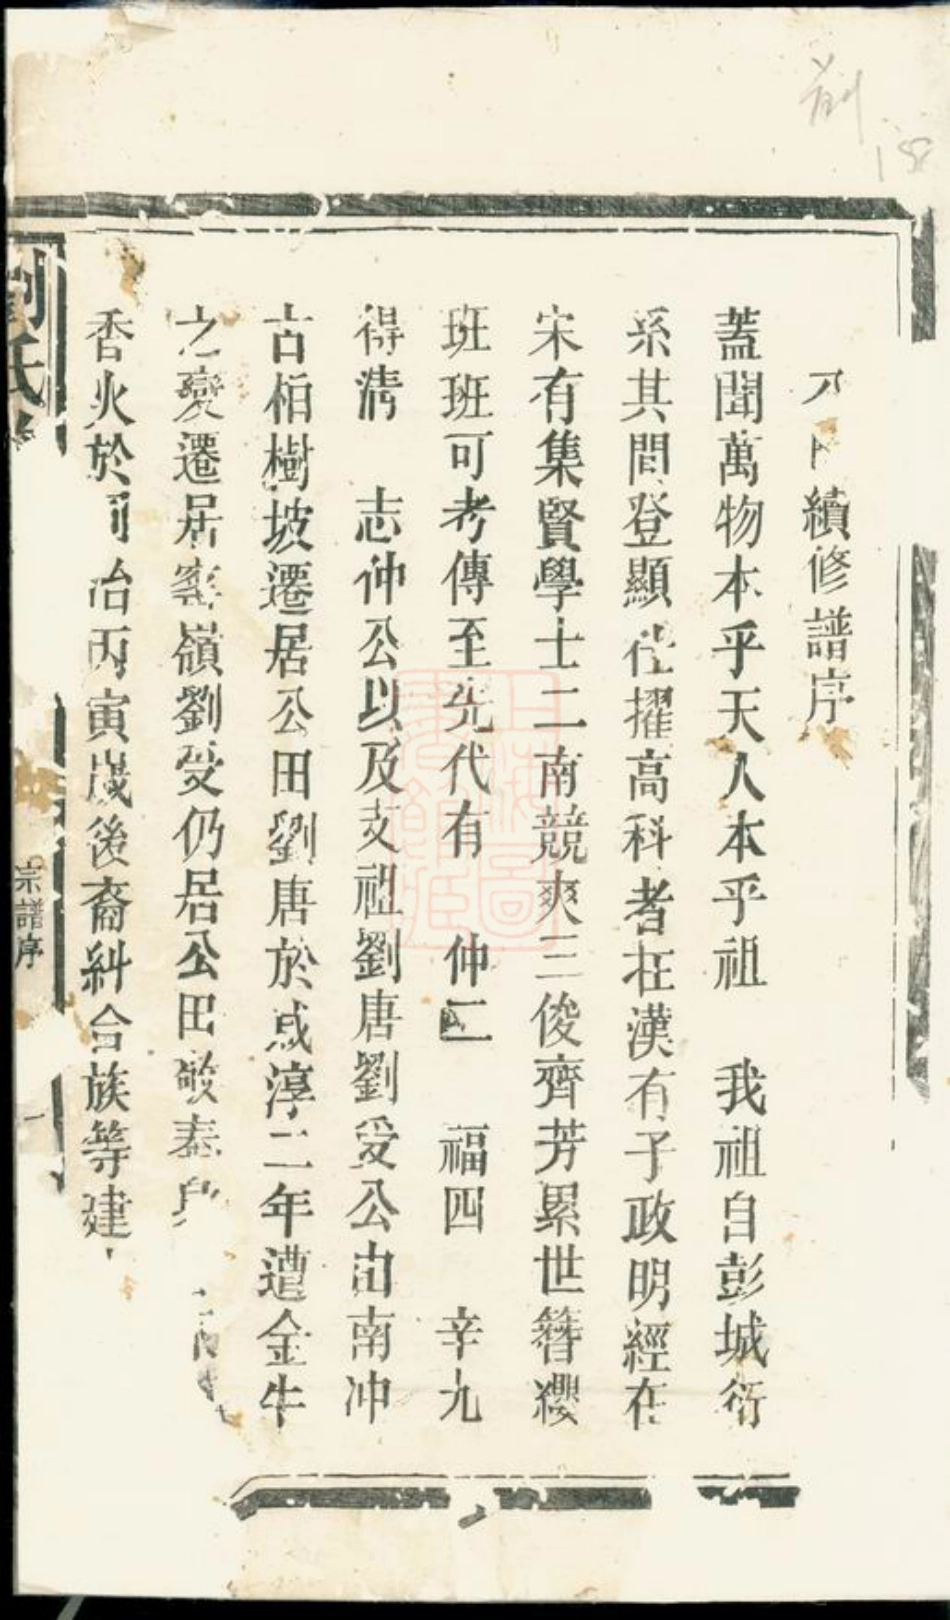 續修譜序
蓋聞萬物本乎天人本乎祖 我祖自彭城衍
系其間登顯仕擢高科者在漢有子政明經在
宋有集賢學士二南競爽三俊齊芳累世簪纓
班班可考傳至先代有 仲二 福四 辛九
得淸 志仲公以及支祖劉唐劉受公由南冲
古柏樹坡遷居公田劉唐於咸淳二年遭金牛
之變遷居 嶺劉受仍居公田
香火於同治丙寅歲後裔糾合族等建
劉氏
宗譜序
一